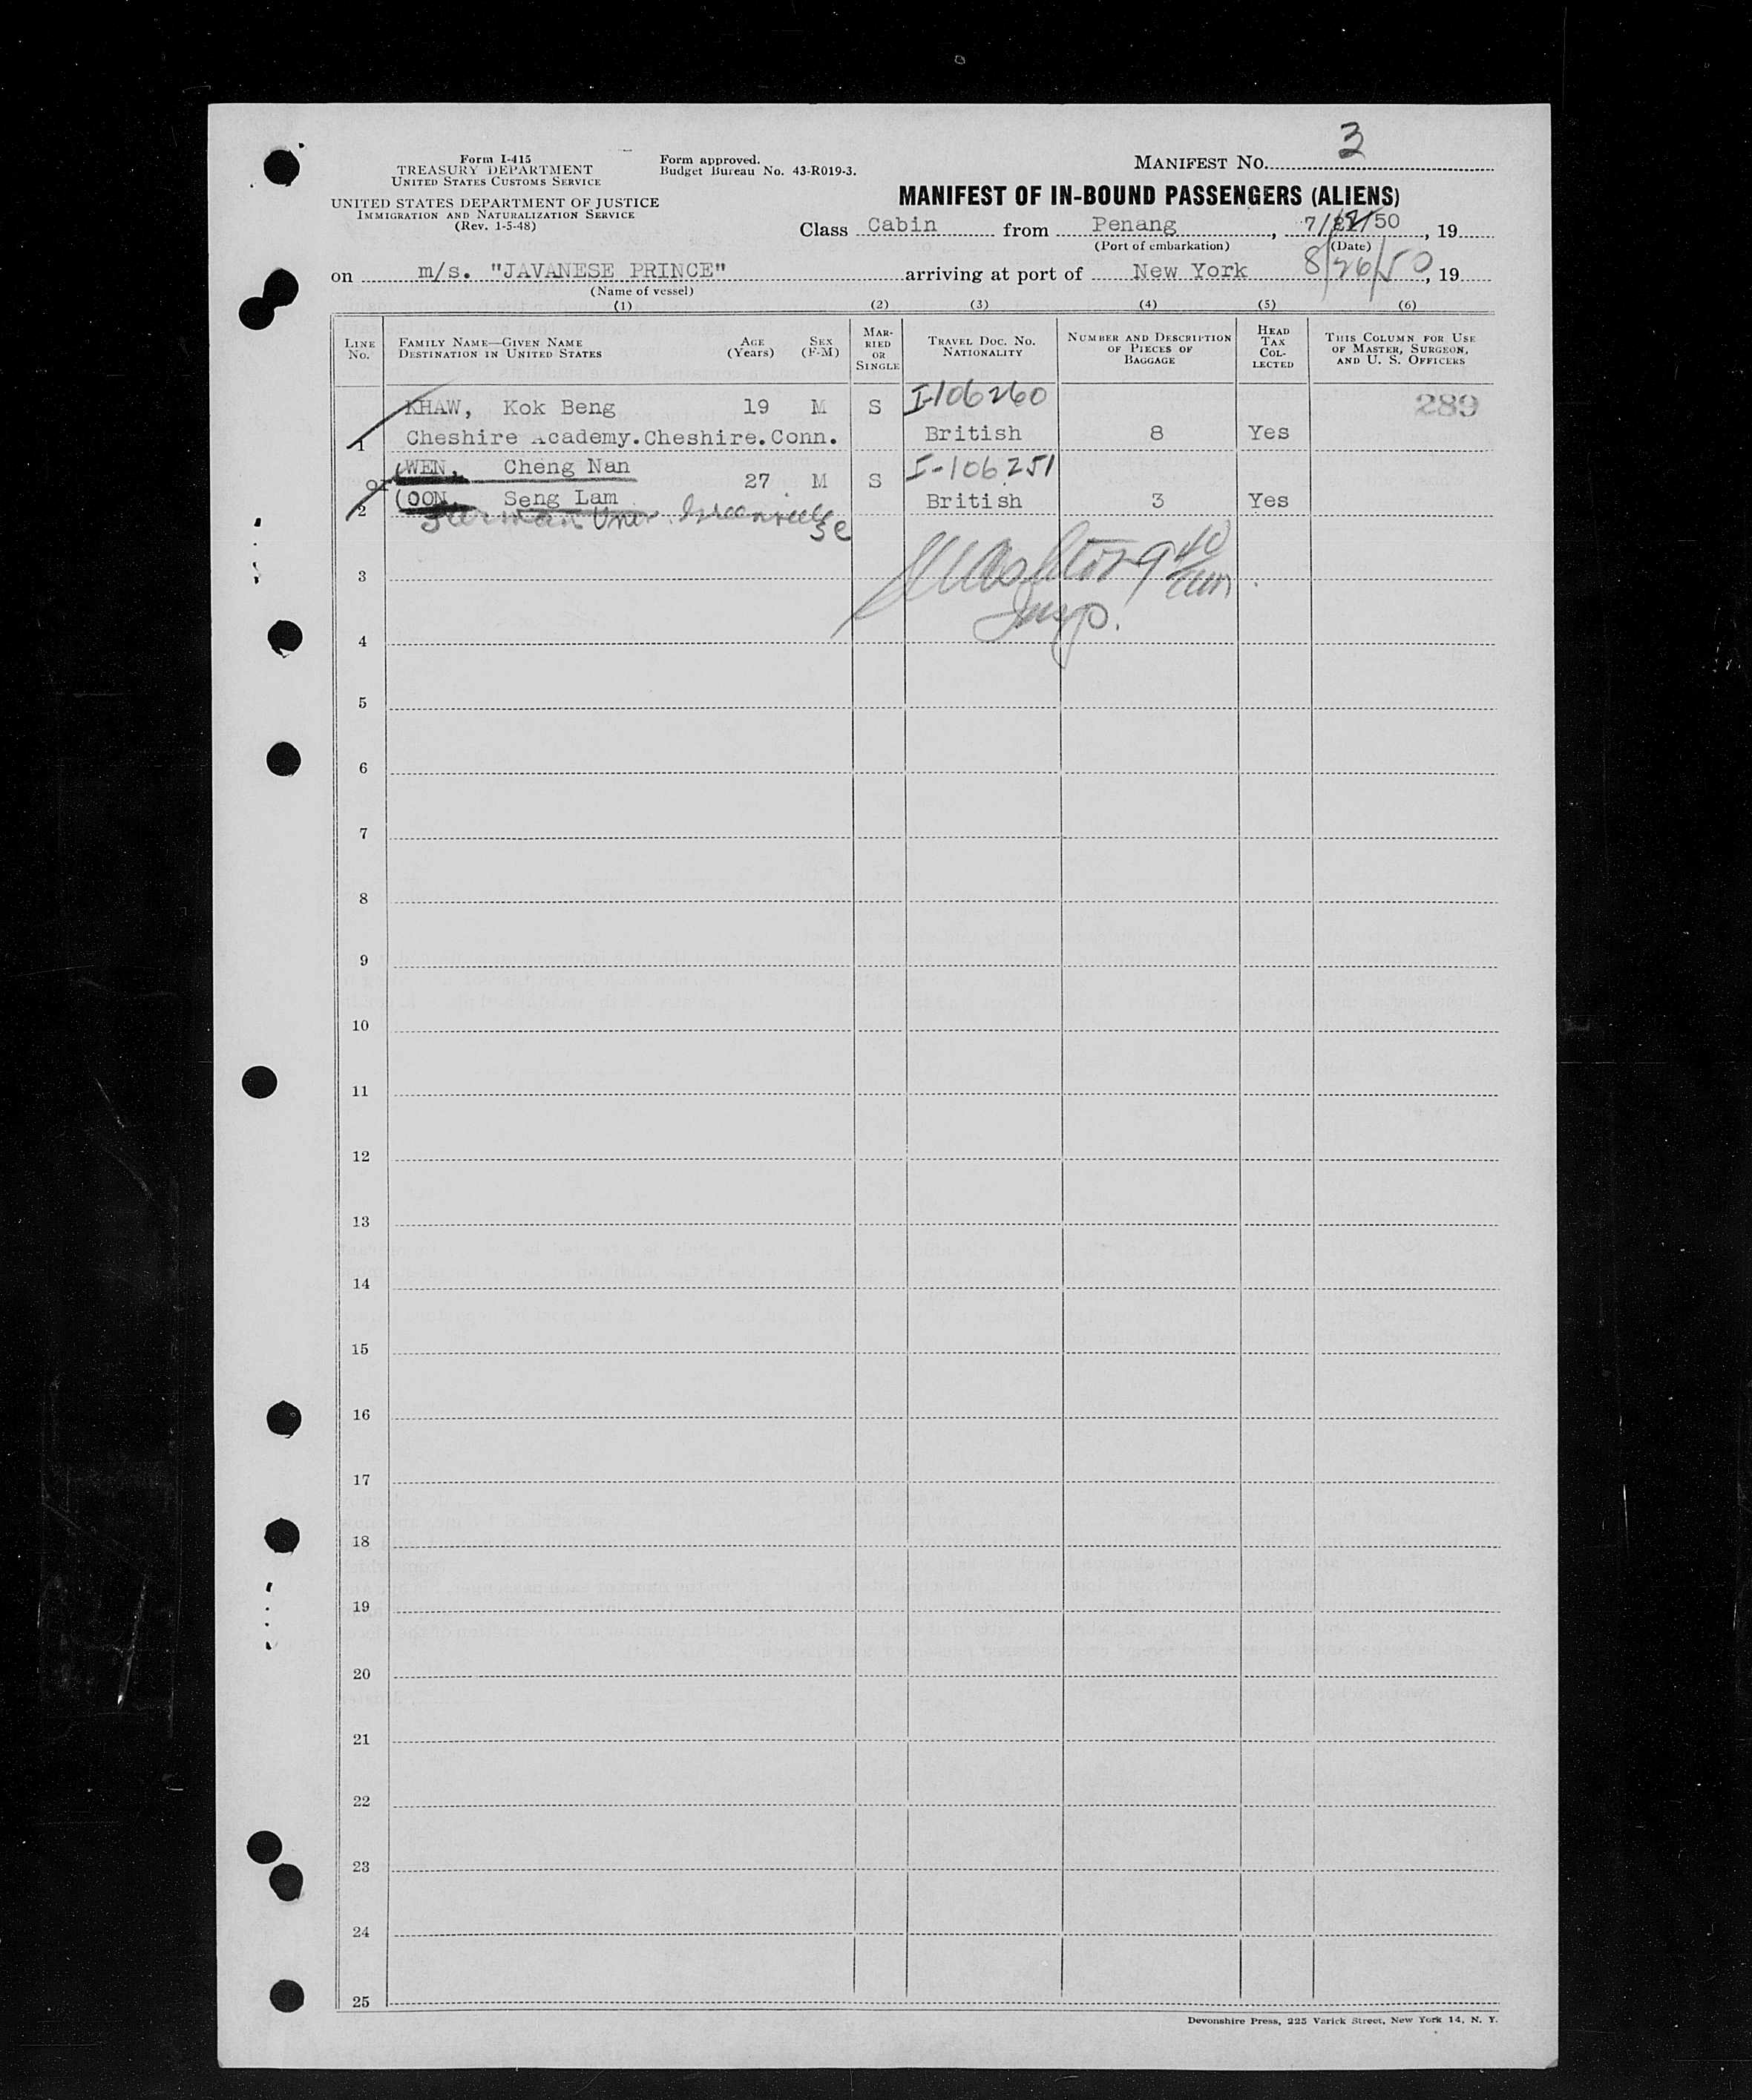 3
Form I-415
TREASURY DEPARTMENT
UNITED STATES CUSTOMS SERVICE
UNITED STATES DEPARTMENT OF JUSTICE
IMMIGRATION AND NATURALIZATION SERVICE
(Rev. 1-5-48)
Form approved.
Budget Bureau No. 43-R019-3.
MANIFEST NO.
MANIFEST OF IN-BOUND PASSENGERS (ALIENS)
Class Cabin from Penang, 7/ /50, 19
(Port of embarkation) (Date)
on m/s. "JAVANESE PRINCE" arriving at port of New York 8/26/50, 19
(Name of vessel)
(1) (2) (3) (4) (5) (6)
LINE No. FAMILY NAME—GIVEN NAME DESTINATION IN UNITED STATES AGE (Years) SEX (F-M) MARRIED OR SINGLE TRAVEL DOC. NO. NATIONALITY NUMBER AND DESCRIPTION OF PIECES OF BAGGAGE HEAD TAX COLLECTED THIS COLUMN FOR USE OF MASTER, SURGEON, AND U. S. OFFICERS
KHAW, Kok Beng 19 M S I-106260 289
1 Cheshire Academy.Cheshire.Conn. British 8 Yes
WEN, Cheng Nan 27 M S I-106251
or
2 OON, Seng Lam British 3 Yes
Furman Univ. Greenville SC
9 40 am
3
Insp.
4
5
6
7
8
9
10
11
12
13
14
15
16
17
18
19
20
21
22
23
24
25
Devonshire Press, 225 Varick Street, New York 14, N. Y.